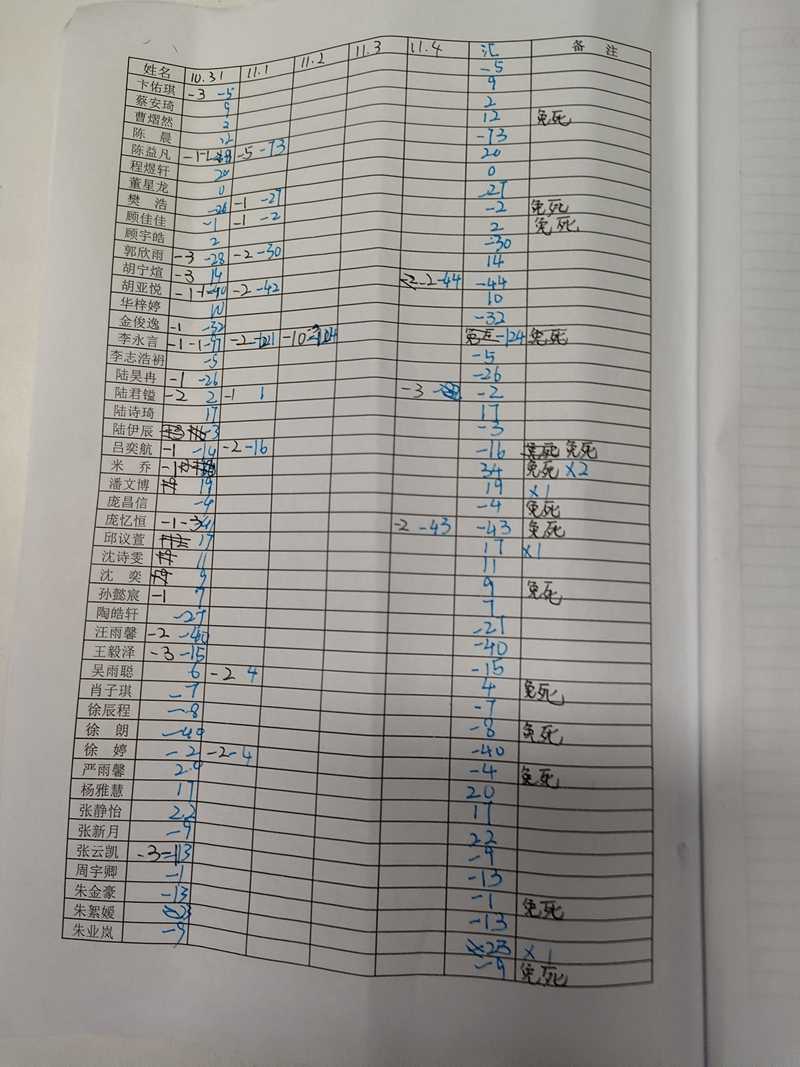 姓名 10.31 11.1 11.2 11.3 11.4 汇 备 注
卞佑琪 -3 -5 -5
蔡安琦 9 9
曹熠然 2 2
陈 晨 12 12 免死
陈益凡 -5 -73 -73
程煜轩 20 20
董星龙 0 0
樊 浩 -26 -1 -27 -27
顾佳佳 -1 -1 -2 -2 免死
顾宇皓 2 2 免死
郭欣雨 -3 -28 -2 -30 -30
胡宁煊 -3 14 14
胡亚悦 -1 -40 -2 -42 -2 -44 -44
华梓婷 10 10
金俊逸 -1 -32 -32
李永言 -1 -1 -2 -121 -10 -124 -124 免死
李志浩礽 -5 -5
陆昊冉 -1 -26 -26
陆君镒 -2 2 -1 1 -3 -2
陆诗琦 17 17
陆伊辰 -3 -3
吕奕航 -1 -14 -2 -16 -16 免死 免死
米 乔 -1 34 免死 ×2
潘文博 19 19 ×1
庞昌信 -4 -4 免死
庞忆恒 -1 -41 -2 -43 -43 免死
邱议萱 17 17 ×1
沈诗雯 11 11
沈 奕 9 9 免死
孙懿宸 -1 7 7
陶皓轩 -27 -27
汪雨馨 -2 -40 -40
王毅泽 -3 -15 -15
吴雨聪 6 -2 4 4 免死
肖子琪 -7 -7
徐辰程 -8 -8 免死
徐 朗 -40 -40
徐 婷 -2 -2 -4 -4 免死
严雨馨 20 20
杨雅慧 17 17
张静怡 22 22
张新月 -9 -9
张云凯 -3 -13 -13
周宇卿 -1 -1 免死
朱金豪 -13 -13
朱絮媛 23 ×1
朱业岚 -9 -9 免死